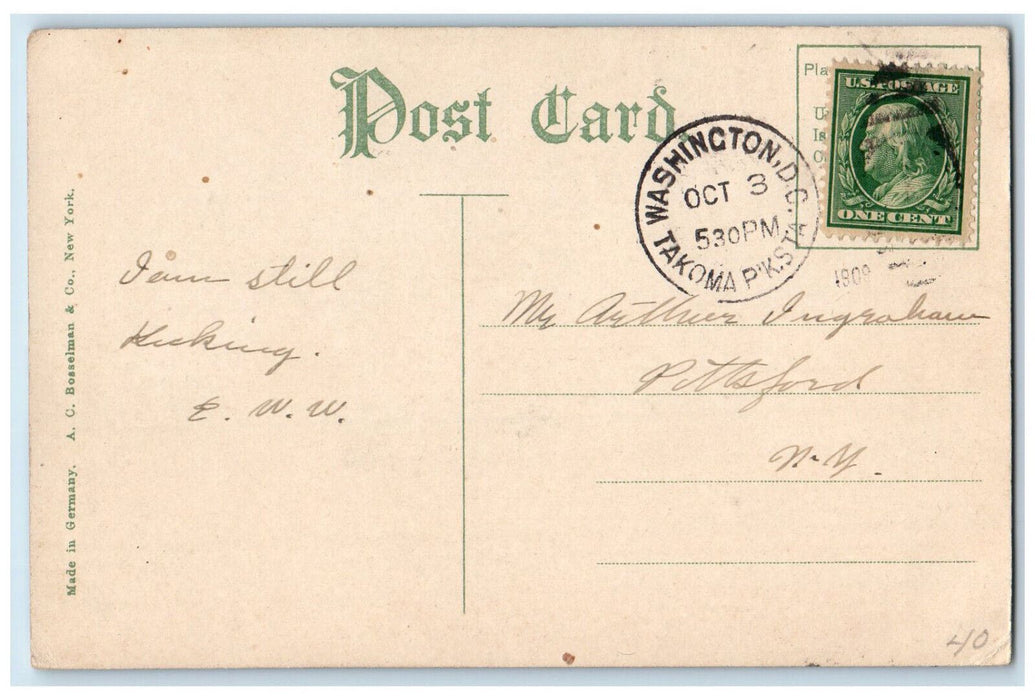 Post Card.
U.S. POSTAGE
ONE CENT
WASHINGTON, D.C.
OCT 3
530PM
TAKOMA P'K. STA.
1909
I am still
Kicking.
E. W. W.
Mr Arthur Ingraham
Pittsford
N-Y.
Made in Germany. A. C. Bosselman & Co., New York.
40